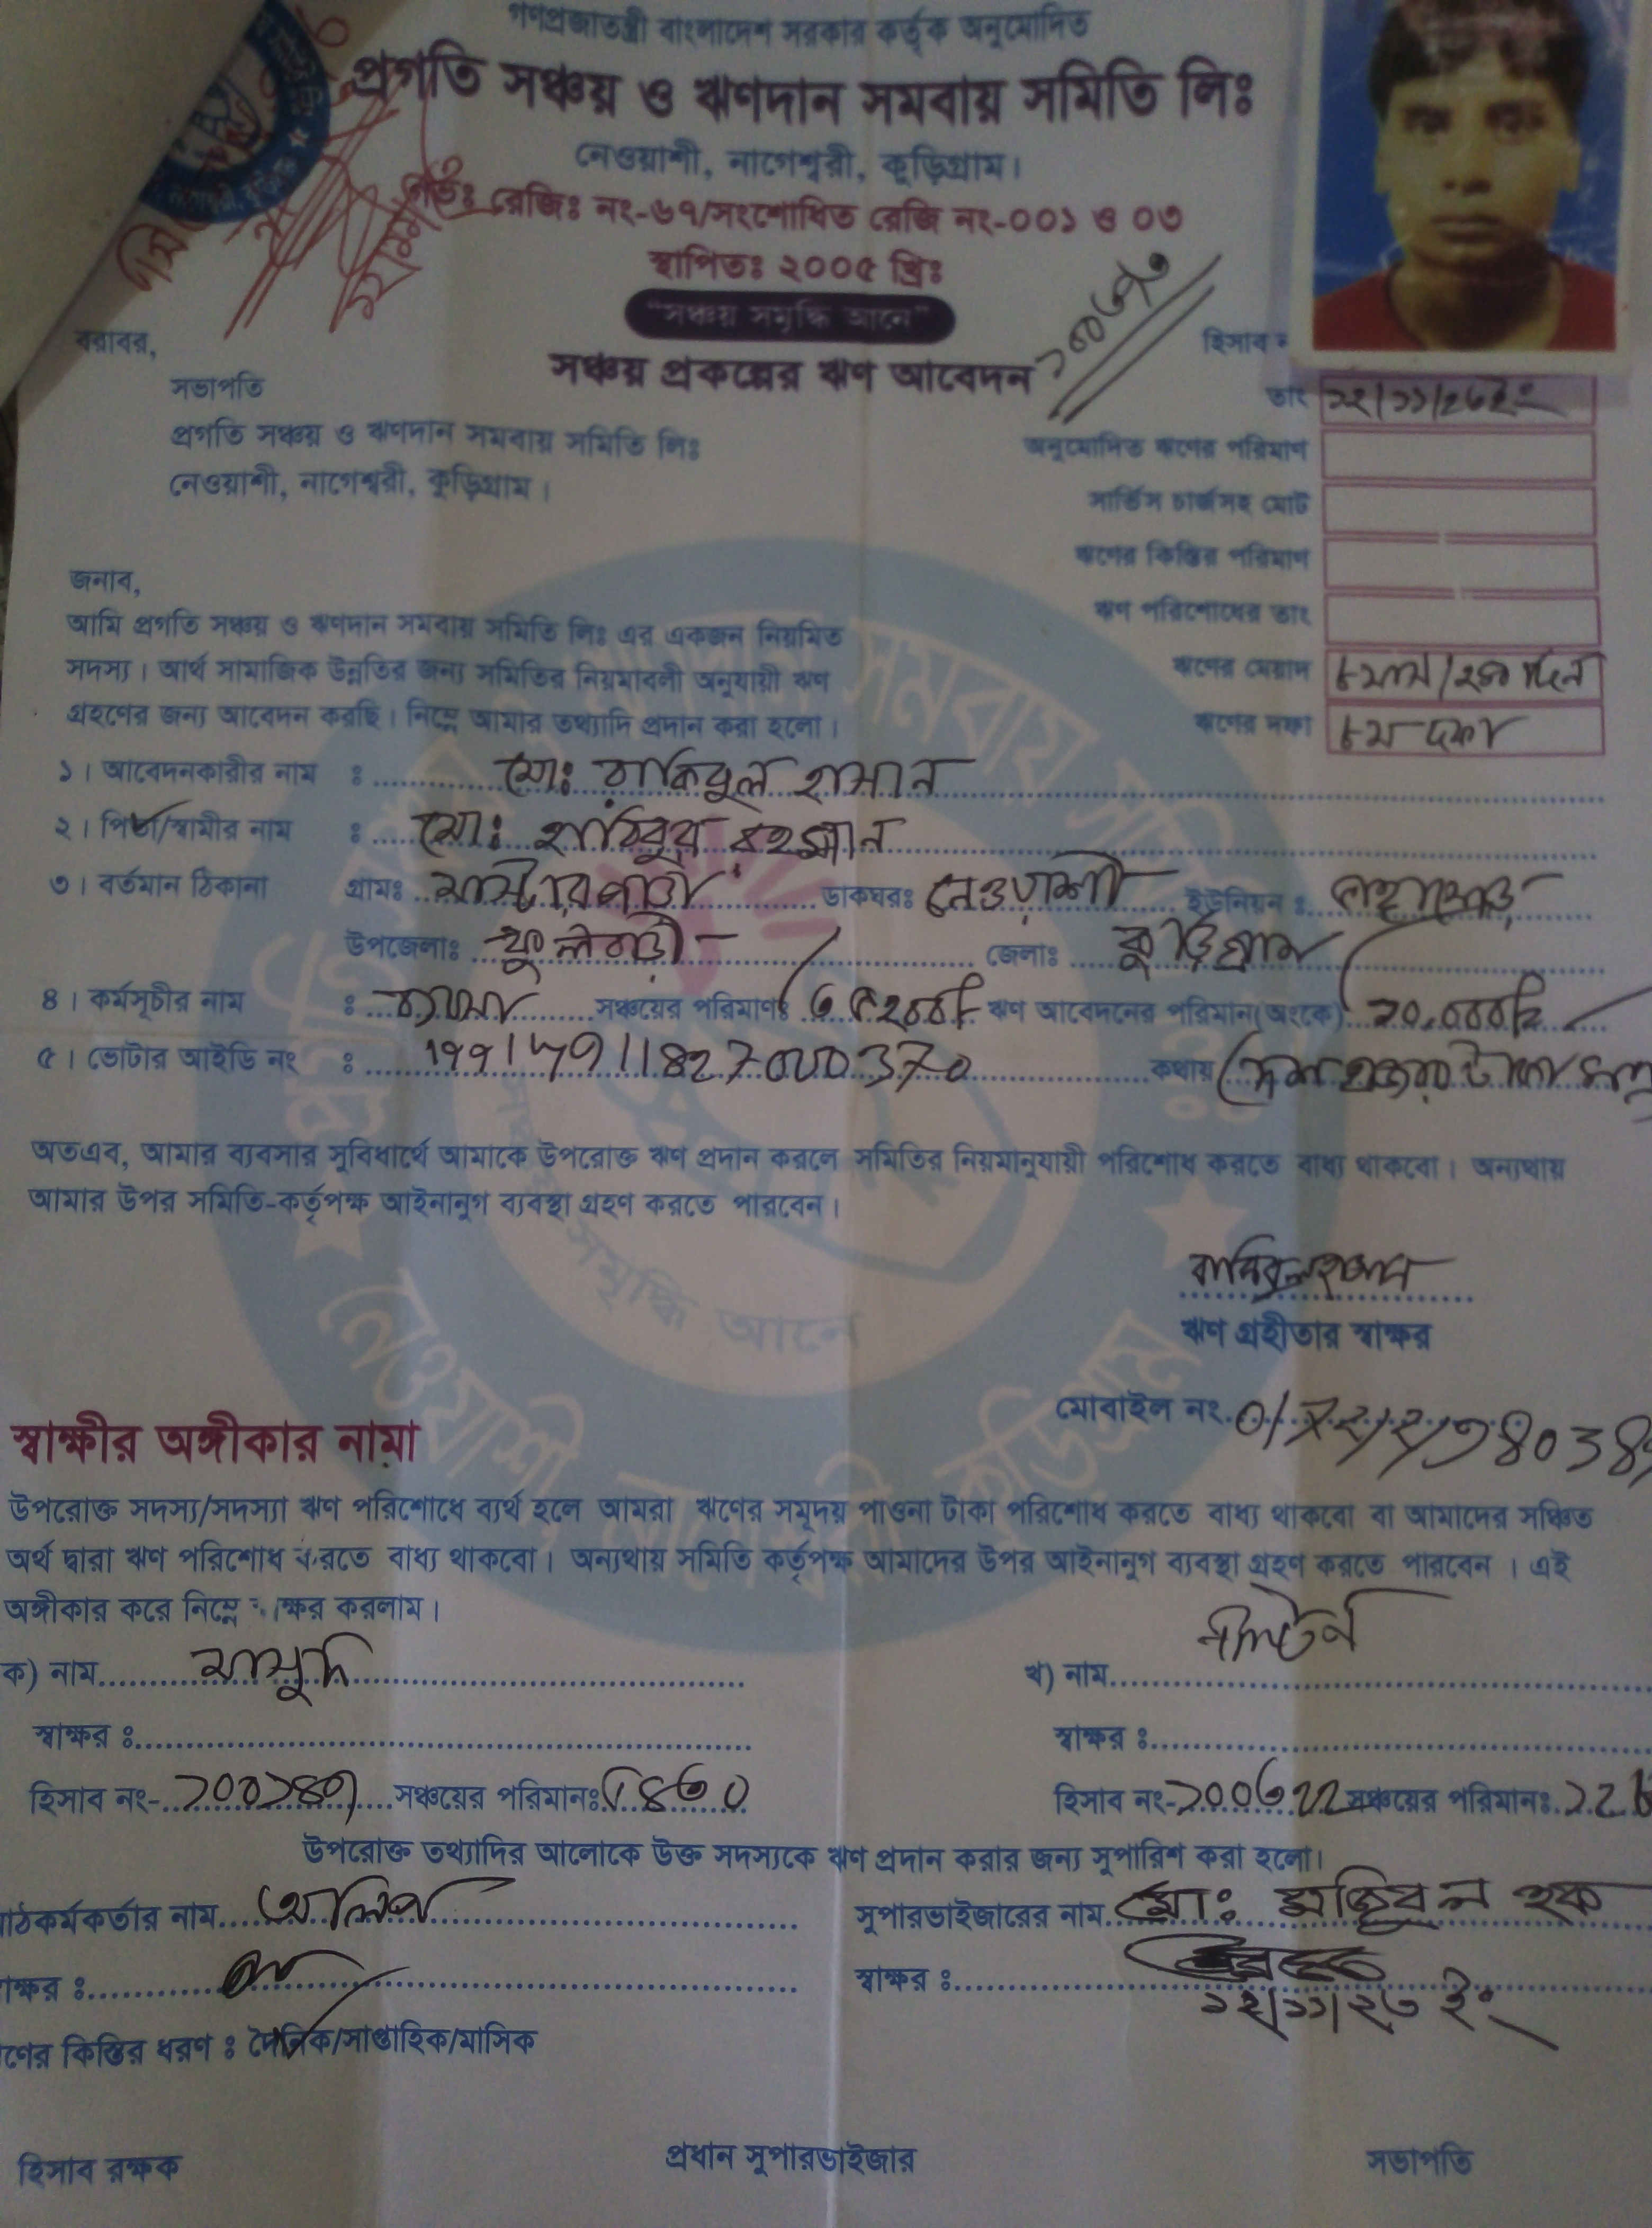 গণপ্রজাতন্ত্রী বাংলাদেশ সরকার কর্তৃক অনুমোদিত
প্রগতি সঞ্চয় ও ঋণদান সমবায় সমিতি লিঃ
নেওয়াশী, নাগেশ্বরী, কুড়িগ্রাম।
রেজিঃ নং-৬৭/সংশোধিত রেজি নং-০০১ ও ০৩
স্থাপিতঃ ২০০৫ খ্রিঃ
"সঞ্চয় সমৃদ্ধি আনে"
সঞ্চয় প্রকল্পের ঋণ আবেদন
হিসাব
বরাবর,
সভাপতি
প্রগতি সঞ্চয় ও ঋণদান সমবায় সমিতি লিঃ
নেওয়াশী, নাগেশ্বরী, কুড়িগ্রাম।
তাং
অনুমোদিত ঋণের পরিমাণ
সার্ভিস চার্জসহ মোট
ঋণের কিস্তির পরিমাণ
ঋণ পরিশোধের তাং
ঋণের মেয়াদ ৮মাস/২৪০ দিন
ঋণের দফা ৮ম দফা
জনাব,
আমি প্রগতি সঞ্চয় ও ঋণদান সমবায় সমিতি লিঃ এর একজন নিয়মিত
সদস্য। আর্থ সামাজিক উন্নতির জন্য সমিতির নিয়মাবলী অনুযায়ী ঋণ
গ্রহণের জন্য আবেদন করছি। নিম্নে আমার তথ্যাদি প্রদান করা হলো।
১। আবেদনকারীর নাম : মোঃ রাকিবুল হাসান
২। পিতা/স্বামীর নাম : মোঃ হাবিবুর রহমান
৩। বর্তমান ঠিকানা গ্রামঃ মাস্টারপাড়া ডাকঘরঃ নেওয়াশী ইউনিয়ন :
উপজেলাঃ ফুলবাড়ী জেলাঃ কুড়িগ্রাম
৪। কর্মসূচীর নাম : ব্যবসা সঞ্চয়ের পরিমাণঃ ঋণ আবেদনের পরিমান(অংকে) ১০,০০০/=
৫। ভোটার আইডি নং : কথায় (দশ হাজার টাকা
অতএব, আমার ব্যবসার সুবিধার্থে আমাকে উপরোক্ত ঋণ প্রদান করলে সমিতির নিয়মানুযায়ী পরিশোধ করতে বাধ্য থাকবো। অন্যথায়
আমার উপর সমিতি-কর্তৃপক্ষ আইনানুগ ব্যবস্থা গ্রহণ করতে পারবেন।
রাকিবুল হাসান
ঋণ গ্রহীতার স্বাক্ষর
মোবাইল নং.
স্বাক্ষীর অঙ্গীকার নামা
উপরোক্ত সদস্য/সদস্যা ঋণ পরিশোধে ব্যর্থ হলে আমরা ঋণের সমূদয় পাওনা টাকা পরিশোধ করতে বাধ্য থাকবো বা আমাদের সঞ্চিত
অর্থ দ্বারা ঋণ পরিশোধ করতে বাধ্য থাকবো। অন্যথায় সমিতি কর্তৃপক্ষ আমাদের উপর আইনানুগ ব্যবস্থা গ্রহণ করতে পারবেন। এই
অঙ্গীকার করে নিম্নে ক্ষর করলাম।
ক) নাম মাসুদ খ) নাম
স্বাক্ষর : স্বাক্ষর :
হিসাব নং- সঞ্চয়ের পরিমানঃ হিসাব নং- সঞ্চয়ের পরিমানঃ
উপরোক্ত তথ্যাদির আলোকে উক্ত সদস্যকে ঋণ প্রদান করার জন্য সুপারিশ করা হলো।
াঠকর্মকর্তার নাম সুপারভাইজারের নাম মোঃ হক
াক্ষর : স্বাক্ষর :
ণের কিস্তির ধরণ : দৈনিক/সাপ্তাহিক/মাসিক
হিসাব রক্ষক প্রধান সুপারভাইজার সভাপতি